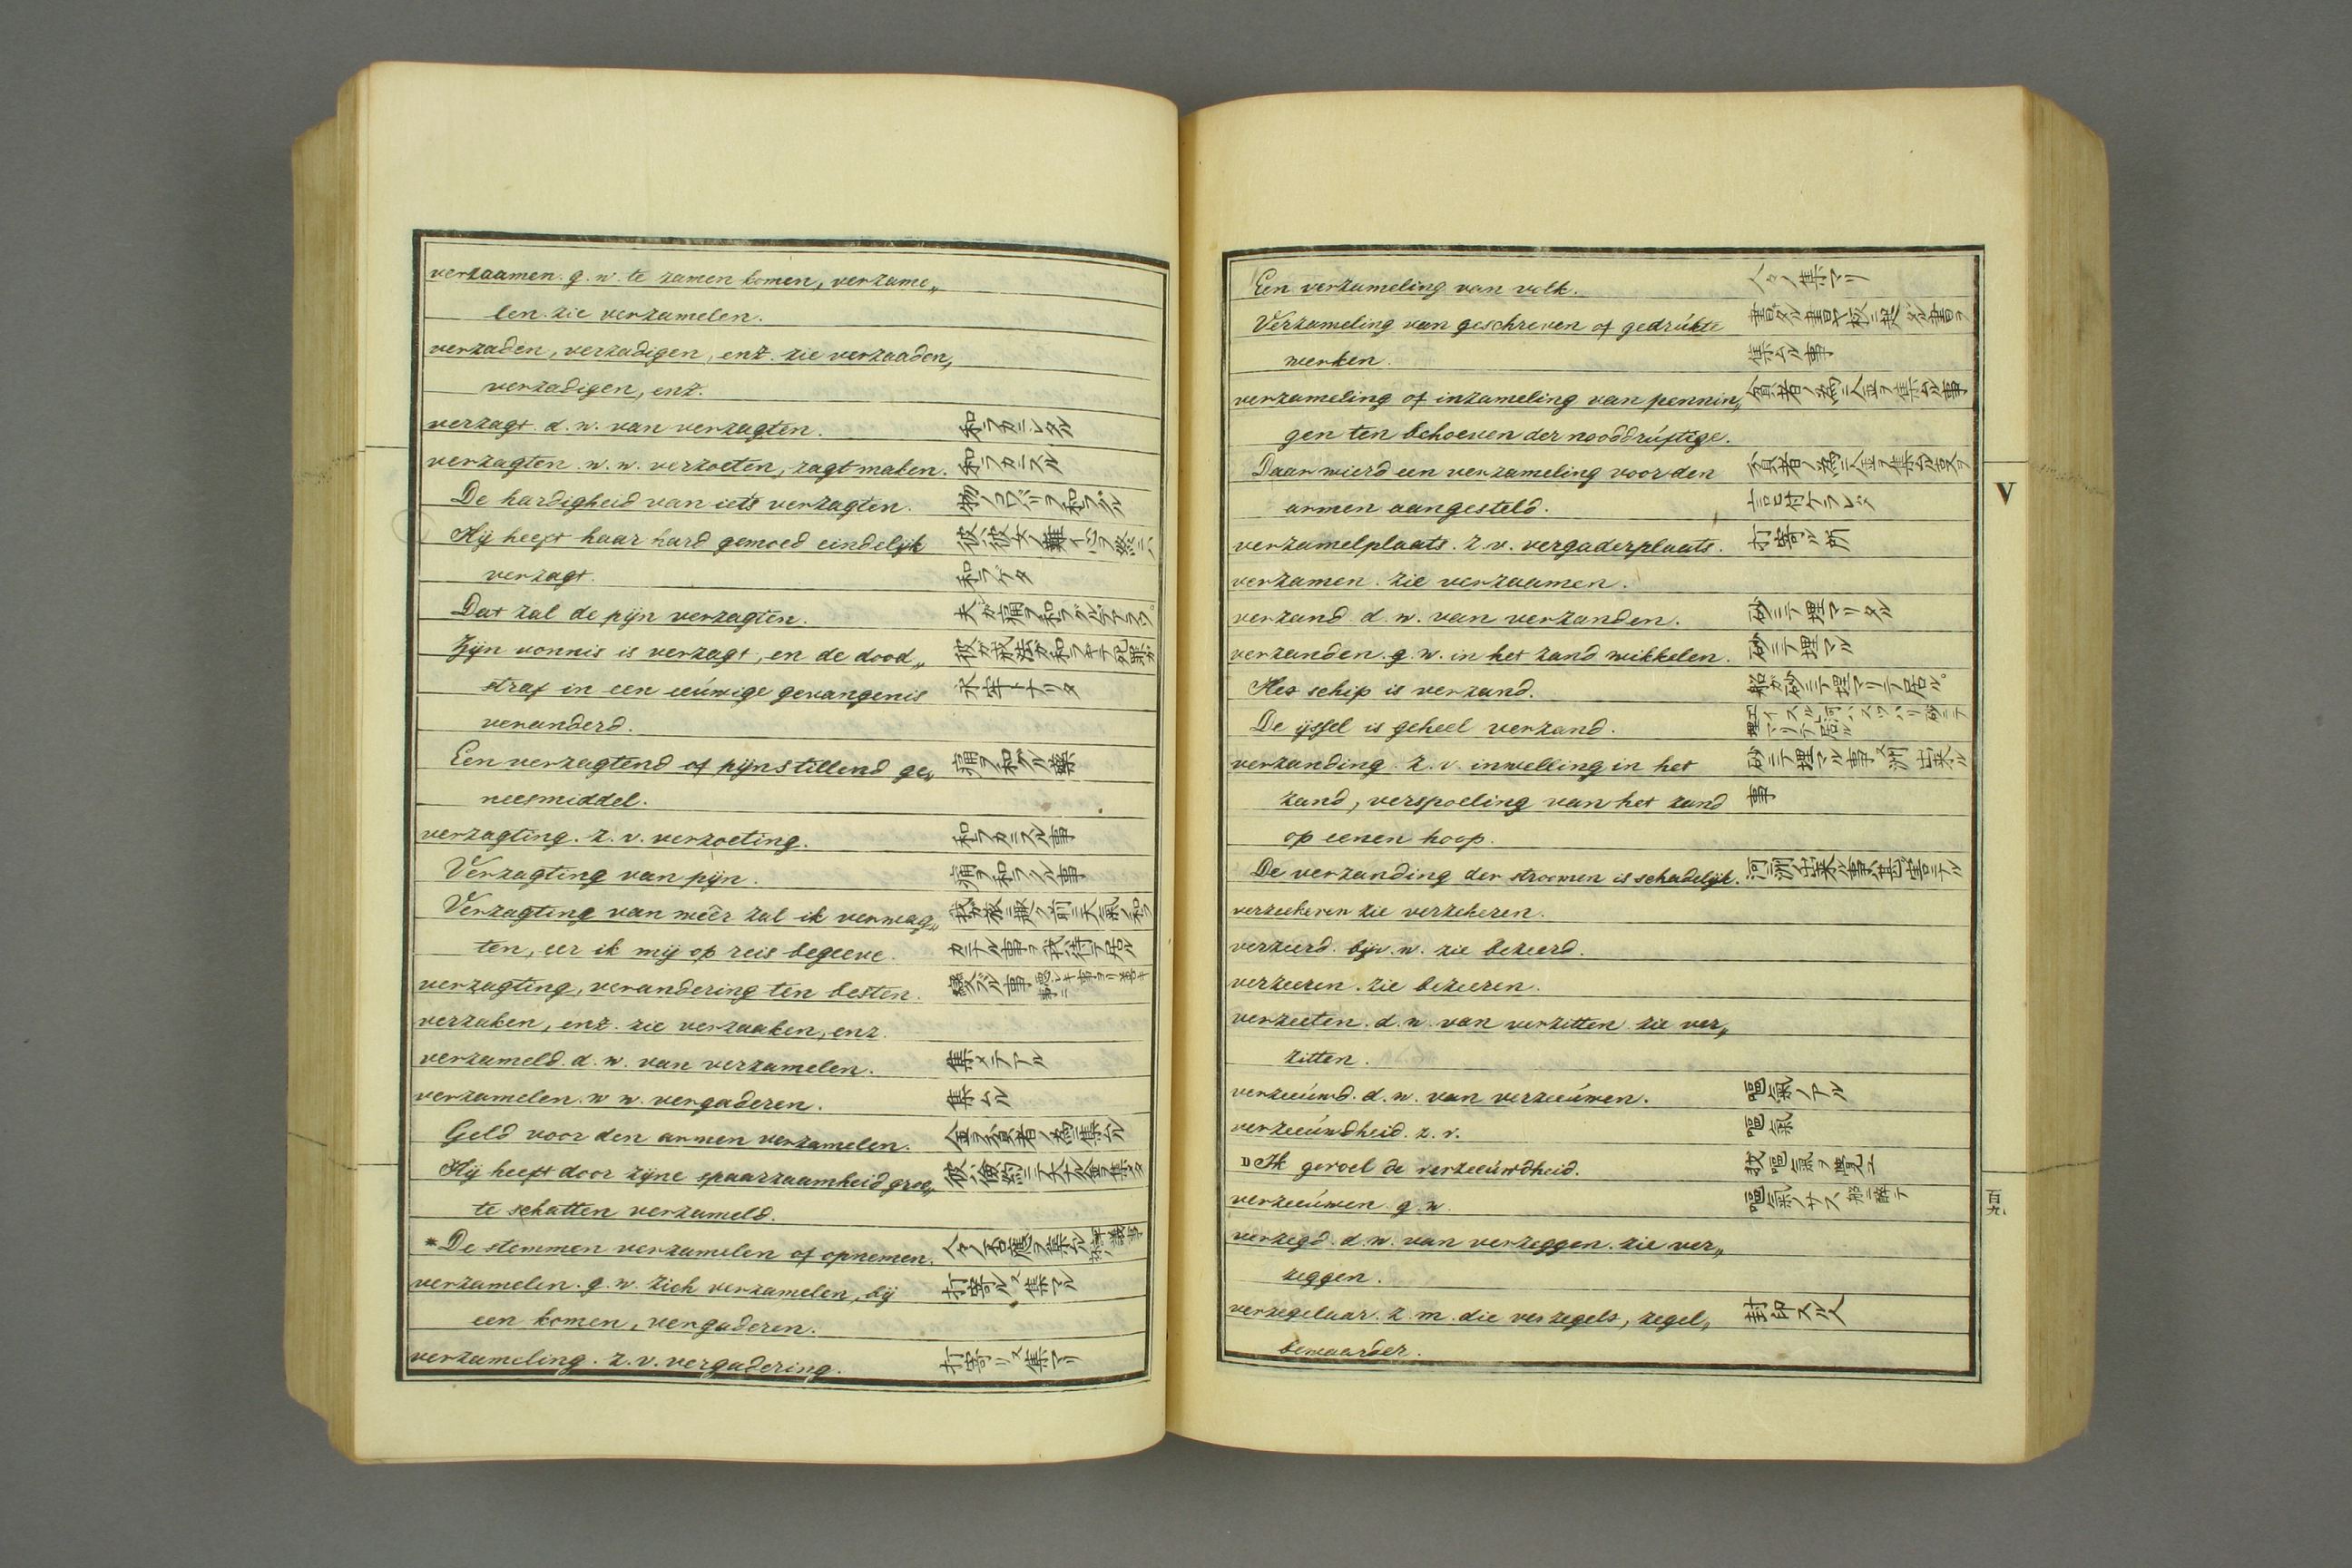 verzaamen. g. w. te zamen komen, verzame„
len. zie verzamelen.
verzaden, verzadigen, enz. zie verzaaden,
verzadigen, enz.
verzagt. d. w. van verzagten. 和ラカニシタル
verzagten. w. w. verzoeten, zagt maken. 和ラカニスル
De hardigheid van iets verzagten. 物ノコワバリヲ和ラグル
Hij heeft haar hard gemoed eindelijk
verzagt. 和ラゲタ
Dat zal de pijn verzagten.
Zijn vonnis is verzagt, en de dood„
straf in een eeúwige gevangenis 永牢トナリタ
veranderd.
Een verzagtend of pijnstillend ge„ 痛ヲ和グル藥
neesmiddel.
verzagting. z. v. verzoeting. 和ラカニスル事
Verzagting van pijn. 痛ヲ和ラグル事
Verzagting van méêr zal ik verwag„
ten, eer ik mij op reis begeeve.
verzagting, verandering ten besten.
verzaken, enz. zie verzaaken, enz.
verzameld. d. w. van verzamelen. 集メテアル
verzamelen. w w. vergaderen. 集ムル
Geld voor den armen verzamelen. 金ヲ貧者ノ為ニ集ムル
Hij heeft door zijne spaarzaamheid groo„
te schatten verzameld.
*De stemmen verzamelen of opnemen.
verzamelen. g. w. zich verzamelen, bij 打寄ル又集マル
een komen, vergaderen.
verzameling. z. v. vergadering. 打寄リ又集マリ
Een verzameling van volk. 人々ノ集マリ
Verzameling van geschreven of gedrúkte
werken. 集ムル事
verzameling of inzameling van pennin„ 貧者ノ為ニ金ヲ集ムル事
gen ten behoeven der nooddrúftige.
Daar wierd een verzameling voor den
armen aangesteld.
verzamelplaats. z. v. vergaderplaats. 打寄ル所
verzamen. zie verzaamen.
verzand. d. w. van verzanden. 砂ニテ埋マリタル
verzanden. g. w. in het zand wikkelen. 砂ニテ埋マル
Het schip is verzand. 船ガ砂ニテ埋マリテ居ル。
De ijssel is geheel verzand.
verzanding. z. v. inwelling in het 砂ニテ埋マル事又洲ノ出来ル
zand, verspoeling van het zand 事
op eenen hoop.
De verzanding der stroomen is schadelijk.
verzeekeren zie verzekeren.
verzeerd. bijv. w. zie bezeerd.
verzeeren. zie bezeeren.
verzeeten. d. w. van verzitten zie ver„
zitten.
verzeeúwd. d. w. van verzeeúwen. 嘔氣ノアル
verzeeúwdheid. z. v. 嘔氣
Ik gevoel de verzeeúwdheid.
verzeeúwen. g. w.
verzegd. d. w. van verzeggen. zie ver„
zeggen.
verzegelaar. z. m. die verzegelt, zegel„ 封印スル人
bewaarder.
V